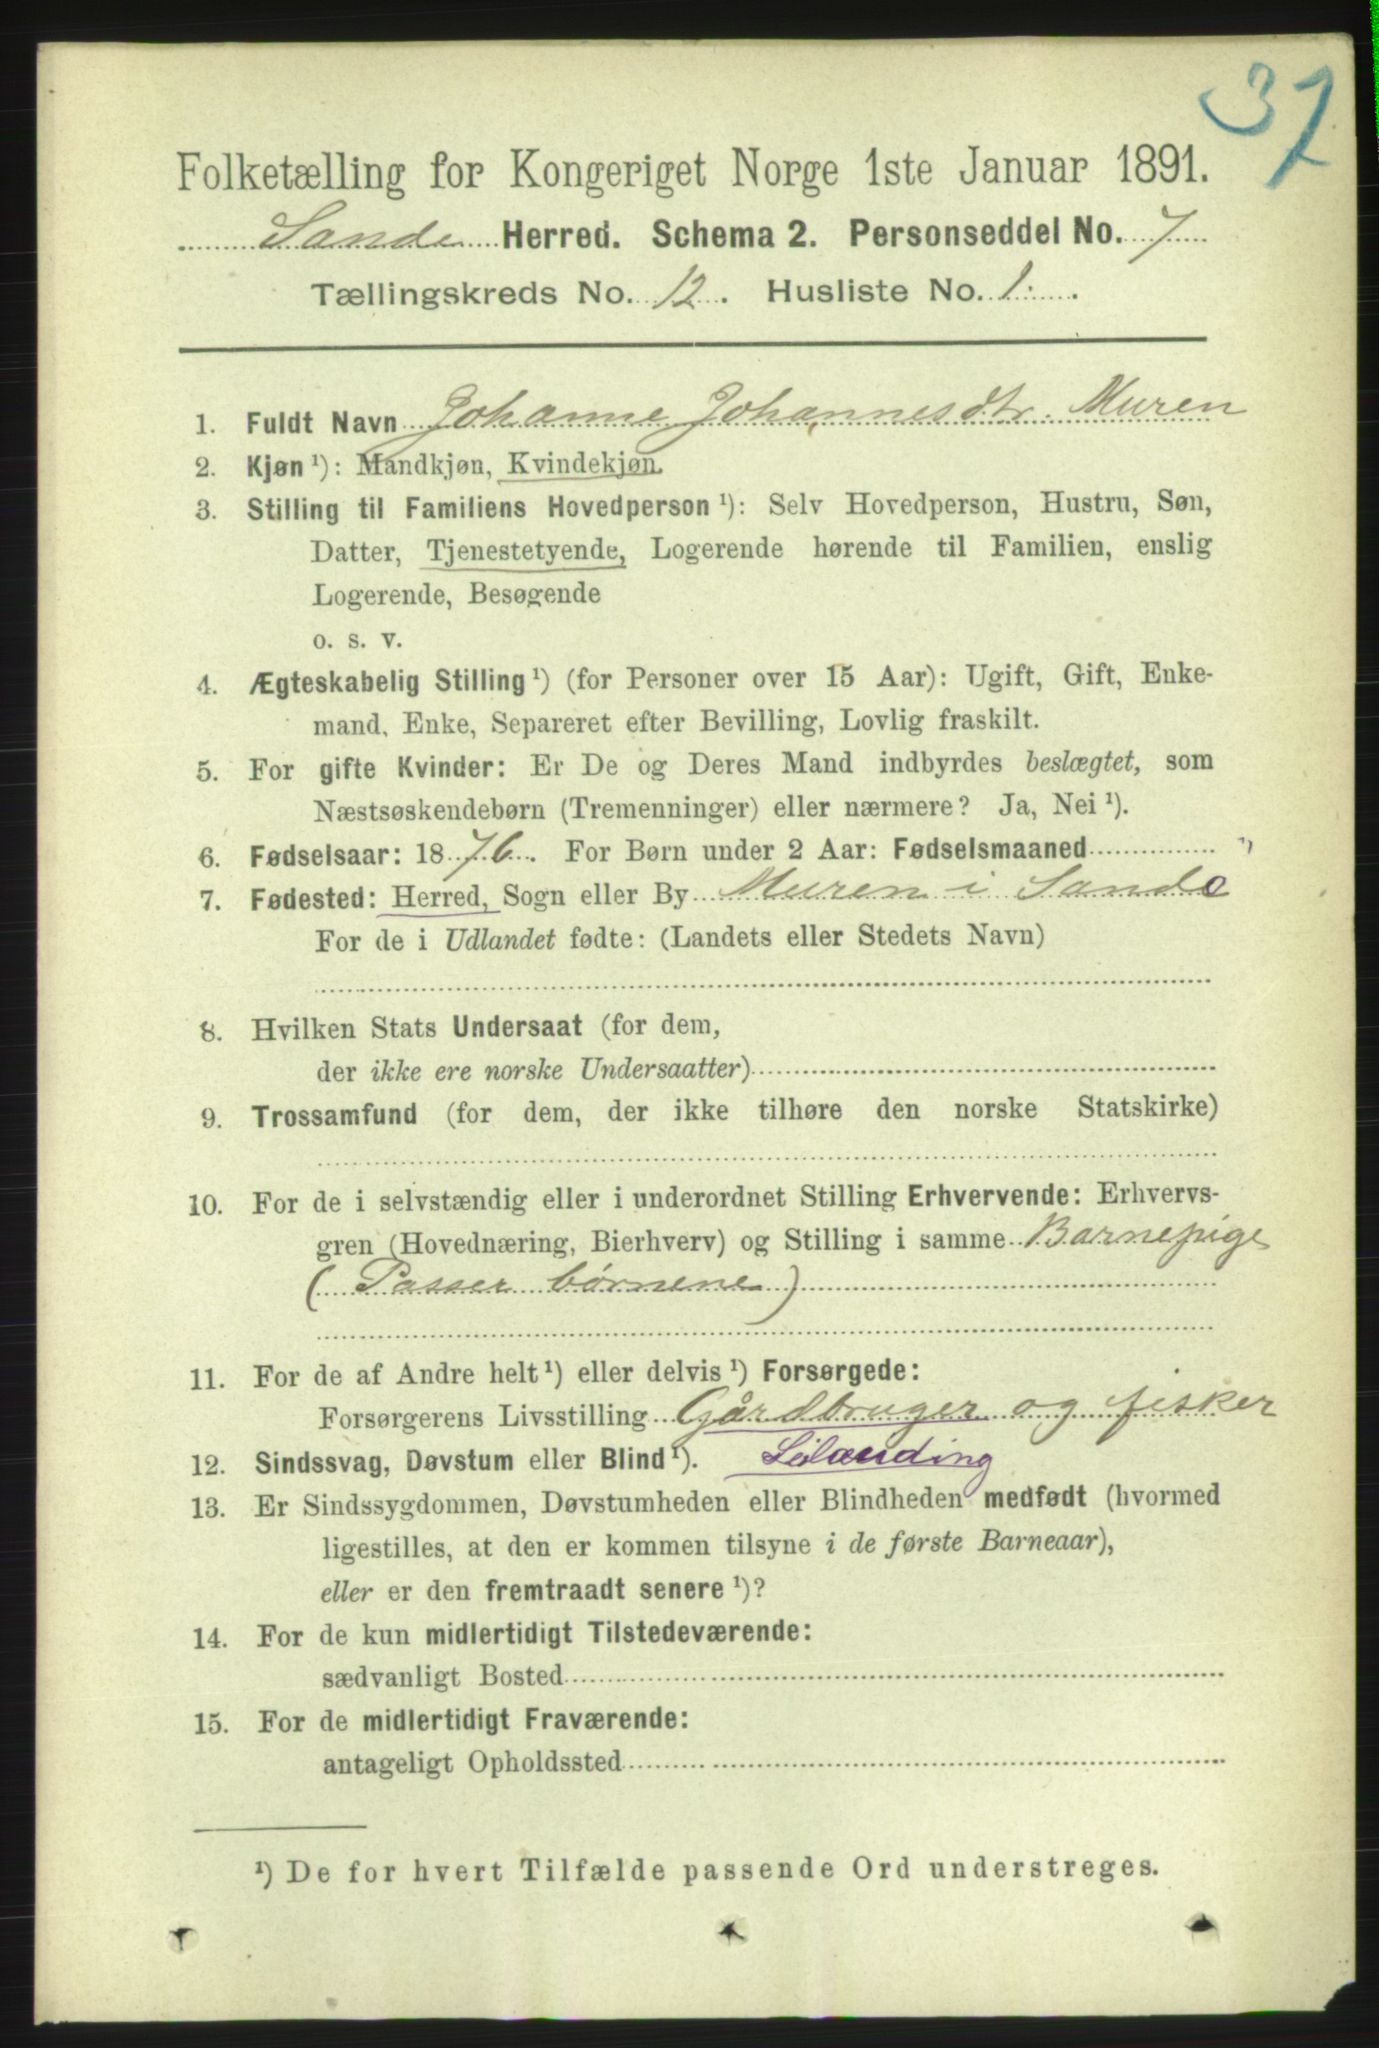 37
Folketælling for Kongeriget Norge 1ste Januar 1891.
Sande Herred. Schema 2. Personseddel No. 7
Tællingskreds No. 12. Husliste No. 1.
1. Fuldt Navn Johanne Johannesdtr. Muren
2. Kjøn ¹): Mandkjøn, Kvindekjøn.
3. Stilling til Familiens Hovedperson ¹): Selv Hovedperson, Hustru, Søn,
Datter, Tjenestetyende, Logerende hørende til Familien, enslig
Logerende, Besøgende
o. s. v.
4. Ægteskabelig Stilling ¹) (for Personer over 15 Aar): Ugift, Gift, Enke-
mand, Enke, Separeret efter Bevilling, Lovlig fraskilt.
5. For gifte Kvinder: Er De og Deres Mand indbyrdes beslægtet, som
Næstsøskendebørn (Tremenninger) eller nærmere? Ja, Nei ¹).
6. Fødselsaar: 1876. For Børn under 2 Aar: Fødselsmaaned
7. Fødested: Herred, Sogn eller By Muren i Sande
For de i Udlandet fødte: (Landets eller Stedets Navn)
8. Hvilken Stats Undersaat (for dem,
der ikke ere norske Undersaatter)
9. Trossamfund (for dem, der ikke tilhøre den norske Statskirke)
10. For de i selvstændig eller i underordnet Stilling Erhvervende: Erhvervs-
gren (Hovednæring, Bierhverv) og Stilling i samme Barnepige
(Passer børnene)
11. For de af Andre helt ¹) eller delvis ¹) Forsørgede:
Forsørgerens Livsstilling Gårdbruger og fisker
12. Sindssvag, Døvstum eller Blind ¹). Leilænding
13. Er Sindssygdommen, Døvstumheden eller Blindheden medfødt (hvormed
ligestilles, at den er kommen tilsyne i de første Barneaar),
eller er den fremtraadt senere ¹)?
14. For de kun midlertidigt Tilstedeværende:
sædvanligt Bosted
15. For de midlertidigt Fraværende:
antageligt Opholdssted
¹) De for hvert Tilfælde passende Ord understreges.